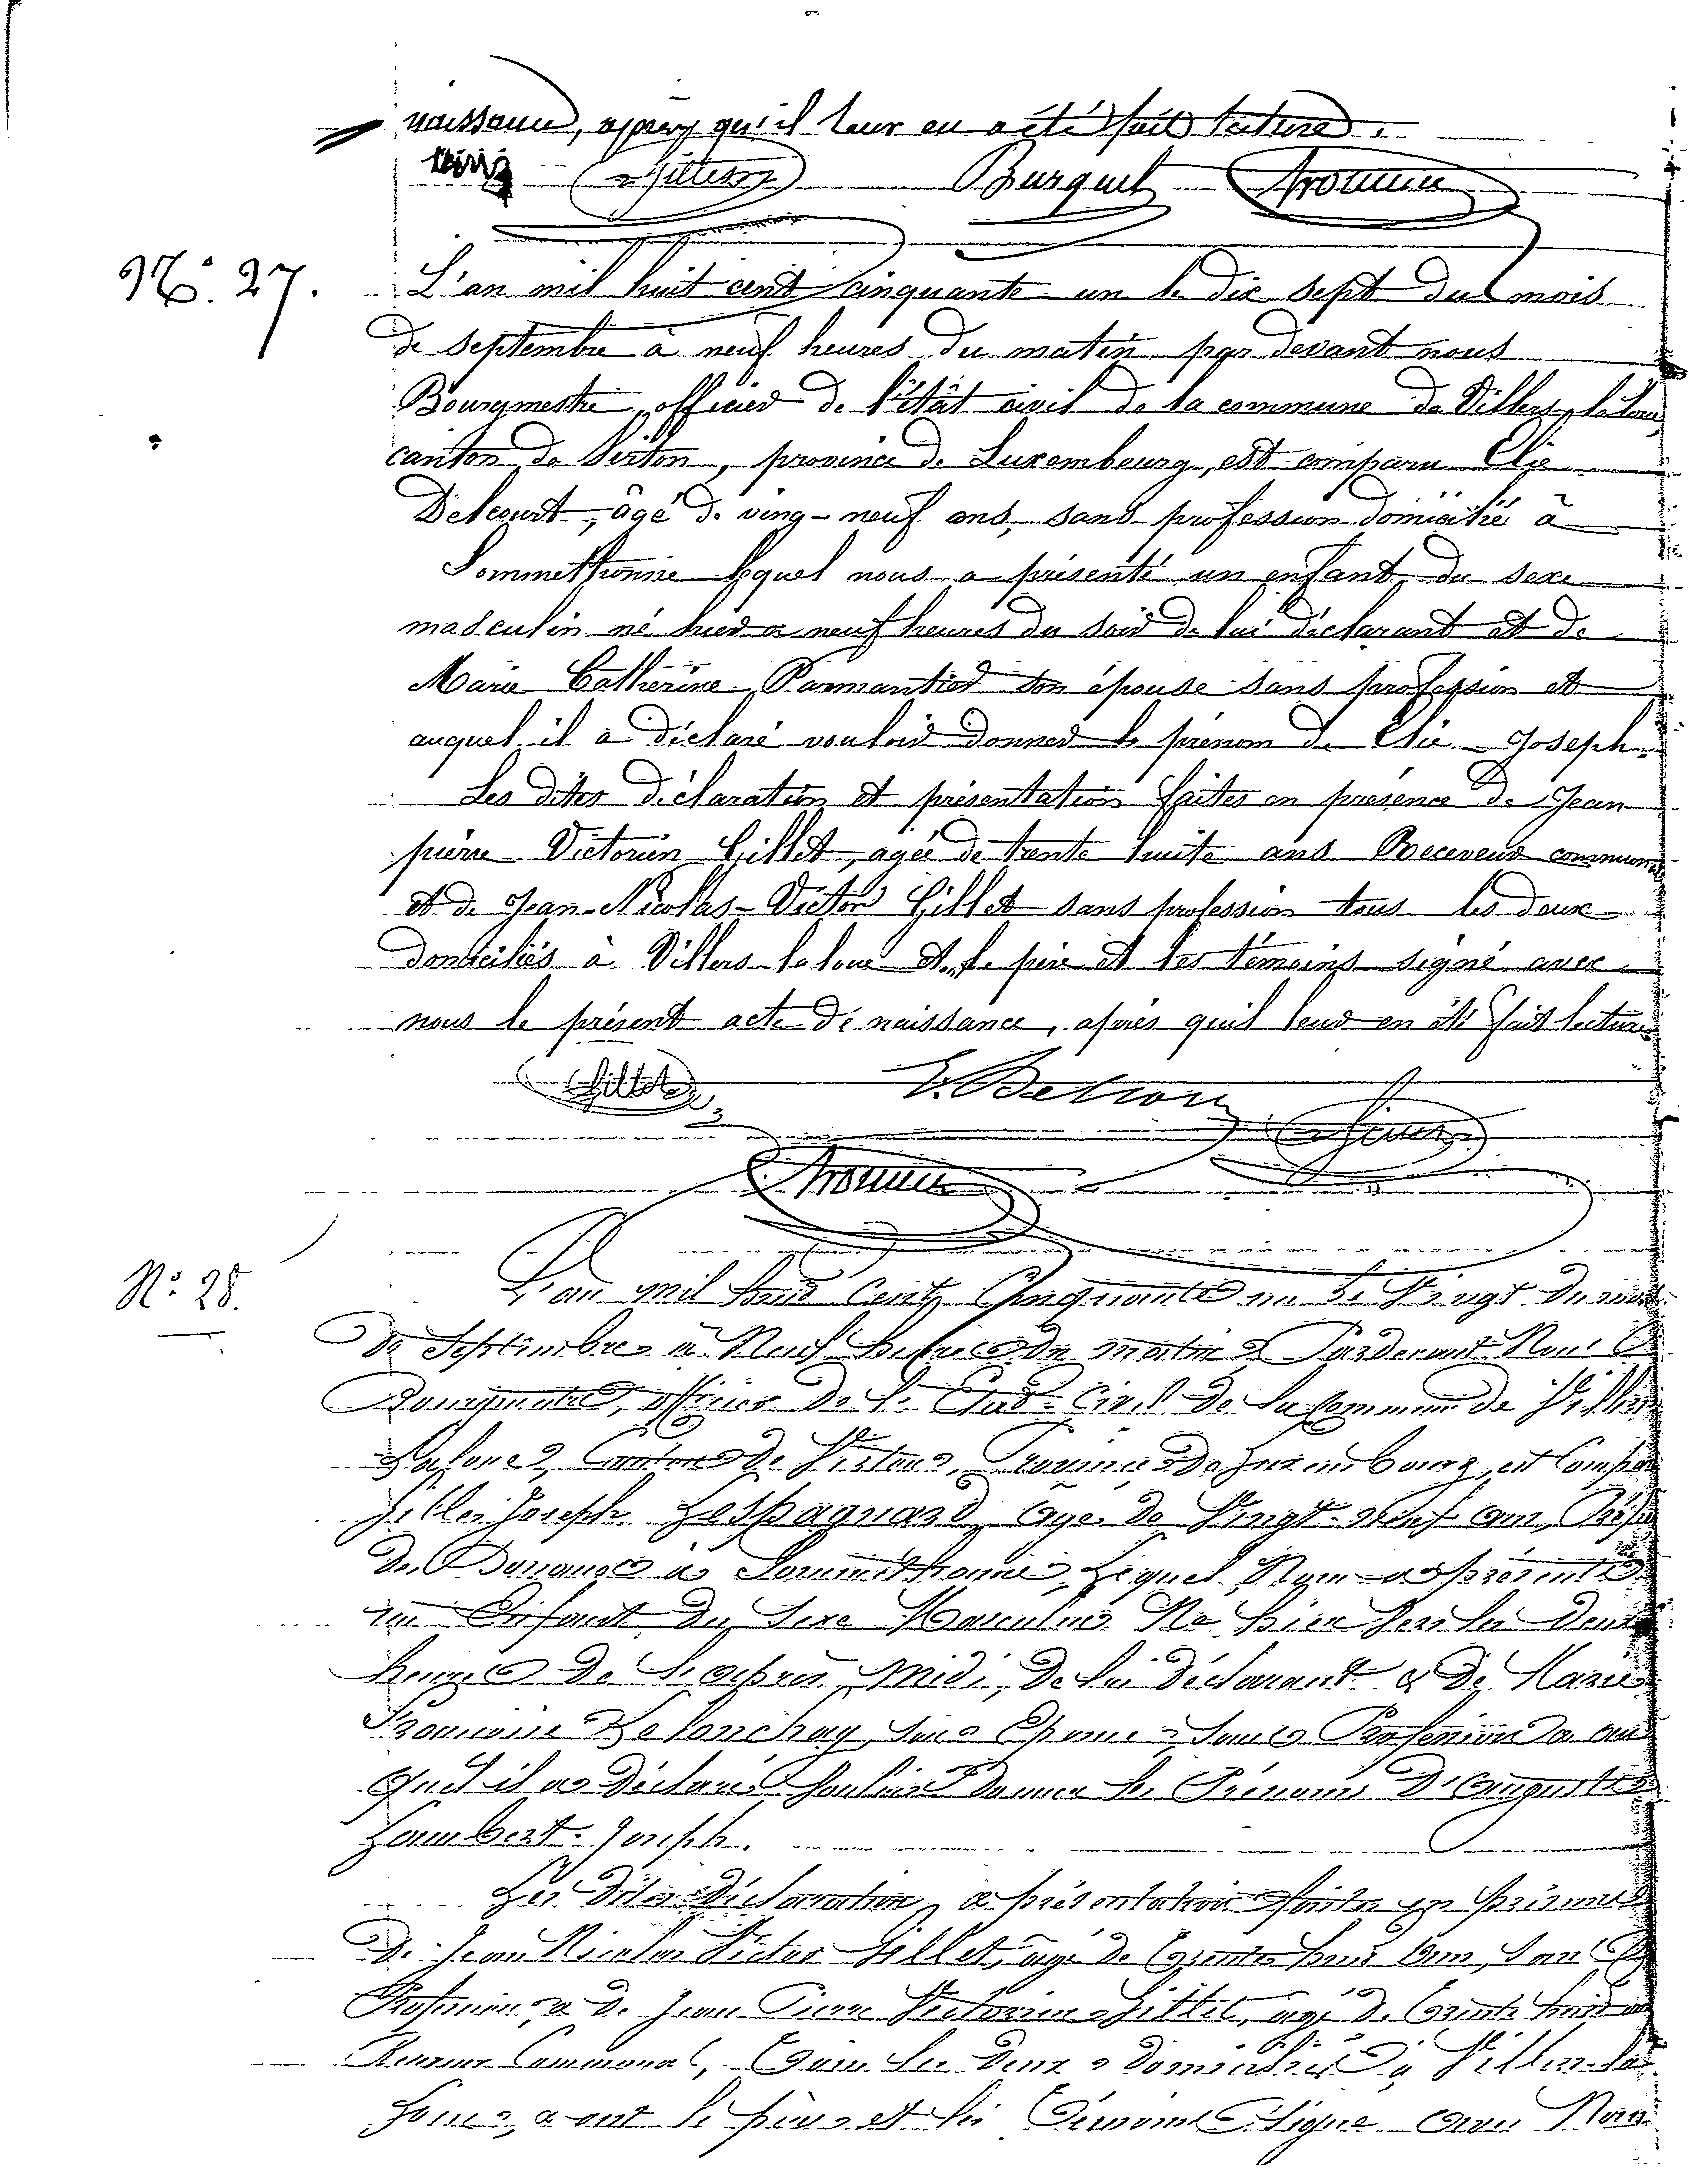 naissance, après qu'il leur en a été fait lecture.
Gillet Burquet
N°. 27.
L'an mil huit cent cinquante un le dix sept du mois
de septembre à neuf heures du matin par devant nous
Bourgmestre, officier de l'état civil de la commune de Villers la loue
canton de Virton, province de Luxembourg, est comparu Elie
Delcourt, âgé de ving-neuf ans, sans profession domicilié à
Sommethonne lequel nous a présenté un enfant du sexe
masculin né hier a neuf heures du soir de lui déclarant et de
Marie Catherine Parmantier son épouse sans profession et
auquel il a déclaré vouloir donner le prénom de Elie-Joseph.
Les dites déclaration et présentation faites en présence de Jean
pierre Victorin Gillet, agé de trente huite ans Receveur communal
et de Jean-Nicolas-Victor Gillet sans profession tous les deux
domiciliés à Villers la loue et le père et les témoins signé avec
nous le présent acte de naissance, après quil leur en été fait lecture
Gillet
N°: 28.
L'an mil huit Cent Cinquante un le Vingt du mois
de Septembre à Neuf heures du matin Pardevant Nous
Bourgmestre, officier de l'Etat-Civil de la Commune de Villers
Laloue, Canton de Virton, Province de Luxembourg, est Comparu
Gilles Joseph Lespagnard, âgé de Vingt-neuf ans,
de Douane à Sommethonne, Lequel Nous a présenté
un Enfant du Sexe Masculin Né hier vers les deux
heures de l'après midi, de lui déclarant & de Marie
Françoise Delonchay, son Epouse, sans Profession & au
quel il a déclaré vouloir donner les Prénoms D'Auguste
Lambert-Joseph.
Les dites déclaration & présentation faites en présence
De Jean Nicolas Victor Gillet, âgé de trente huit ans, sans
Profession & de Jean Pierre Victorin Gillet, âgé de trente huit ans
Receveur Communal, tous les deux domiciliés à Villers-la
Loue, & ont le père et les témoins signé avec Nous